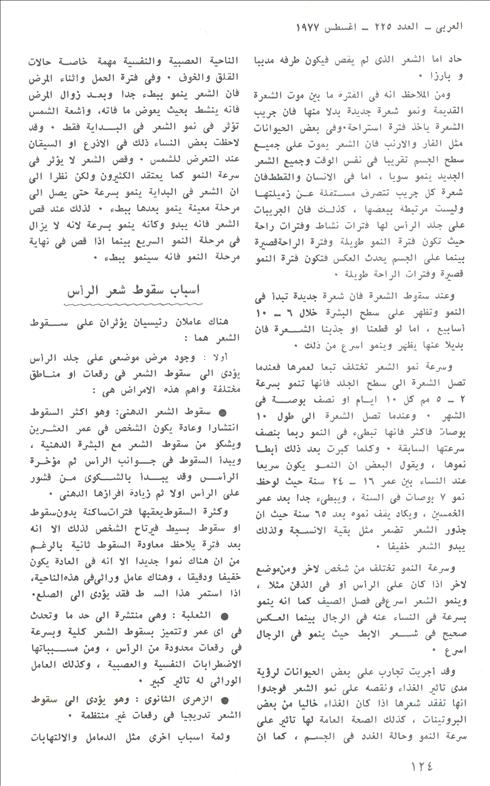 العربي ـ العدد ٢٢٥ ـ اغسطس ١٩٧٧
حاد اما الشعر الذى لم يقص فيكون طرفه مدببا
و بارزا ٠
ومن الملاحظ انه فى الفترة ما بين موت الشعرة
القديمة ونمو شعرة جديدة بدلا منها فان جريب
الشعرة ياخذ فترة استراحة٠وفى بعض الحيوانات
مثل الفار والارنب فان الشعر يموت على جميع
سطح الجسم تقريبا فى نفس الوقت وجميع الشعر
الجديد ينمو سويا ، اما فى الانسان والقططفان
شعرة كل جريب تتصرف مستقلة عن زميلتها
وليست مرتبطة ببعضها ، كذلك فان الجريبات
على جلد الرأس لها فترات نشاط وفترات راحة
حيث تكون فترة النمو طويلة وفترة الراحةقصيرة
بينما على الجسم يحدث العكس فتكون فترة النمو
قصيرة وفترات الراحة طويلة ٠
وعند سقوط الشعرة فان شعرة جديدة تبدأ فى
النمو وتظهر على سطح البشرة خلال ٦ ــ ١٠
أسابيع ، اما لو قطعنا او جذبنا الشعرة فان
بديلا عنها يظهر وينمو اسرع من ذلك ٠
وسرعة نمو الشعر تختلف تبعا لعمرها فعندما
تصل الشعرة الى سطح الجلد فانها تنمو بسرعة
٢ ــ ٥ مم كل ١٠ ايام او نصف بوصة فى
الشهر ٠ وعندما تصل الشعرة الى طول ١٠
بوصات فاكثر فانها تبطىء فى النمو ربما بنصف
سرعتها السابقة ٠ وكلما كبرت بعد ذلك أبطأ
نموها ، ويقول البعض ان النمو يكون سريعا
عند النساء بين عمر ١٦ ــ ٢٤ سنة حيث لوحظ
نمو ٧ بوصات فى السنة ، ويبطىء جدا بعد عمر
الخمسين ، ويكاد يقف نموه بعد ٦٥ سنة حيث ان
جذور الشعر تضمر مثل بقية الانسجة ولذلك
يبدو الشعر خفيفا ٠
وسرعة النمو تختلف من شخص لاخر ومنموضع
لاخر اذا كان على الرأس أو فى الذقن مثلا ،
وينمو الشعر اسرعفى فصل الصيف كما انه ينمو
بسرعة فى النساء عنه فى الرجال بينما العكس
صحيح فى شعر الابط حيث ينمو فى الرجال
اسرع ٠
وقد أجريت تجارب على بعض الحيوانات لرؤية
مدى تاثير الغذاء ونقصه على نمو الشعر فوجدوا
انها تفقد شعرها اذا كان الغذاء خاليا من بعض
البروتينات ، كذلك الصحة العامة لها تاثير على
سرعة النمو وحالة الغدد فى الجسم ، كما ان
الناحية العصبية والنفسية مهمة خاصة حالات
القلق والخوف ٠ وفى فترة الحمل واثناء المرض
فان الشعر ينمو ببطء جدا وبعد زوال المرض
فانه ينشط بحيث يعوض ما فاته، وأشعة الشمس
تؤثر فى نمو الشعر فى البداية فقط ٠ وقد
لاحظت بعض النساء ذلك فى الاذرع او السيقان
عند التعرض للشمس ٠ وقص الشعر لا يؤثر فى
سرعة النمو كما يعتقد الكثيرون ولكن نظرا الى
ان الشعر فى البداية ينمو بسرعة حتى يصل الى
مرحلة معينة ينمو بعدها ببطء ٠ لذلك عند قص
الشعر فانه يبدو وكانه ينمو بسرعة لانه لا يزال
فى مرحلة النمو السريع بينما اذا قص فى نهاية
مرحلة النمو فانه سينمو ببطء ٠
اسباب سقوط شعر الرأس
هناك عاملان رئيسيان يؤثران على سقوط
الشعر هما :
أولا : وجود مرض موضعى على جلد الرأس
يؤدى الى سقوط الشعر فى رقعات او مناطق
مختلفة واهم هذه الامراض هى :
● سقوط الشعر الدهنى: وهو اكثر السقوط
انتشارا وعادة يكون الشخص فى عمر العشرين
ويشكو من سقوط الشعر مع البشرة الدهنية ،
ويبدأ السقوط فى جوانب الرأس ثم مؤخرة
الرأس وقد يبدأ بالشكوى من قشور
على الرأس اولا ثم زيادة افرازها الدهنى ٠
وكثرة السقوطيعقبها فتراتساكنة بدونسقوط
او سقوط بسيط فيرتاح الشخص لذلك الا انه
بعد فترة يلاحظ معاودة السقوط ثانية بالرغم
من ان هناك نموا جديدا الا انه فى العادة يكون
خفيفا ودقيقا ، وهناك عامل وراثىفى هذهالناحية،
اذا استمر هذا السـ ط فقد يؤدى الى الصلع٠
● الثعلبة : وهى منتشرة الى حد ما وتحدث
فى اى عمر وتتميز بسقوط الشعر كلية وبسرعة
فى رقعات محدودة من الرأس ، ومن مسبباتها
الاضطرابات النفسية والعصبية ، وكذلك العامل
الوراثى له تاثير كبير ٠
● الزهرى الثانوى : وهو يؤدى الى سقوط
الشعر تدريجيا فى رقعات غير منتظمة ٠
وثمة اسباب اخرى مثل الدمامل والالتهابات
١٢٤